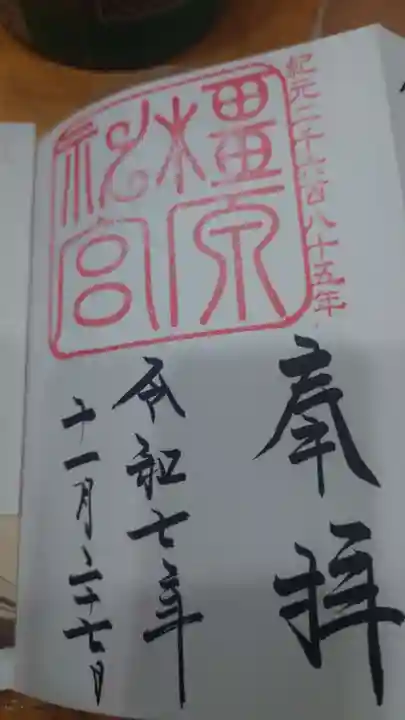 紀元二千六百八十五年
橿原
神宮
奉拝
令和七年
十一月二十七日